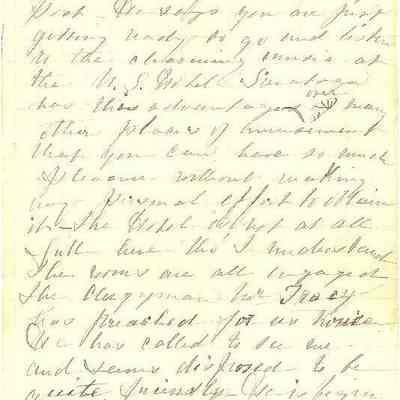 Post - He says you are just
getting ready to go and listen
to the charming music at
the U. S. Hotel - Saratoga
has this advantage over many
other places of amusement
that you can have so much
pleasure without making
any personal effort to obtain
it - The Hotel is not at all
full here tho' I understand
the rooms are all engaged
The clergyman Mr Tracy
has preached for us twice
He has called to see me
and seems disposed to be
quite friendly - He is